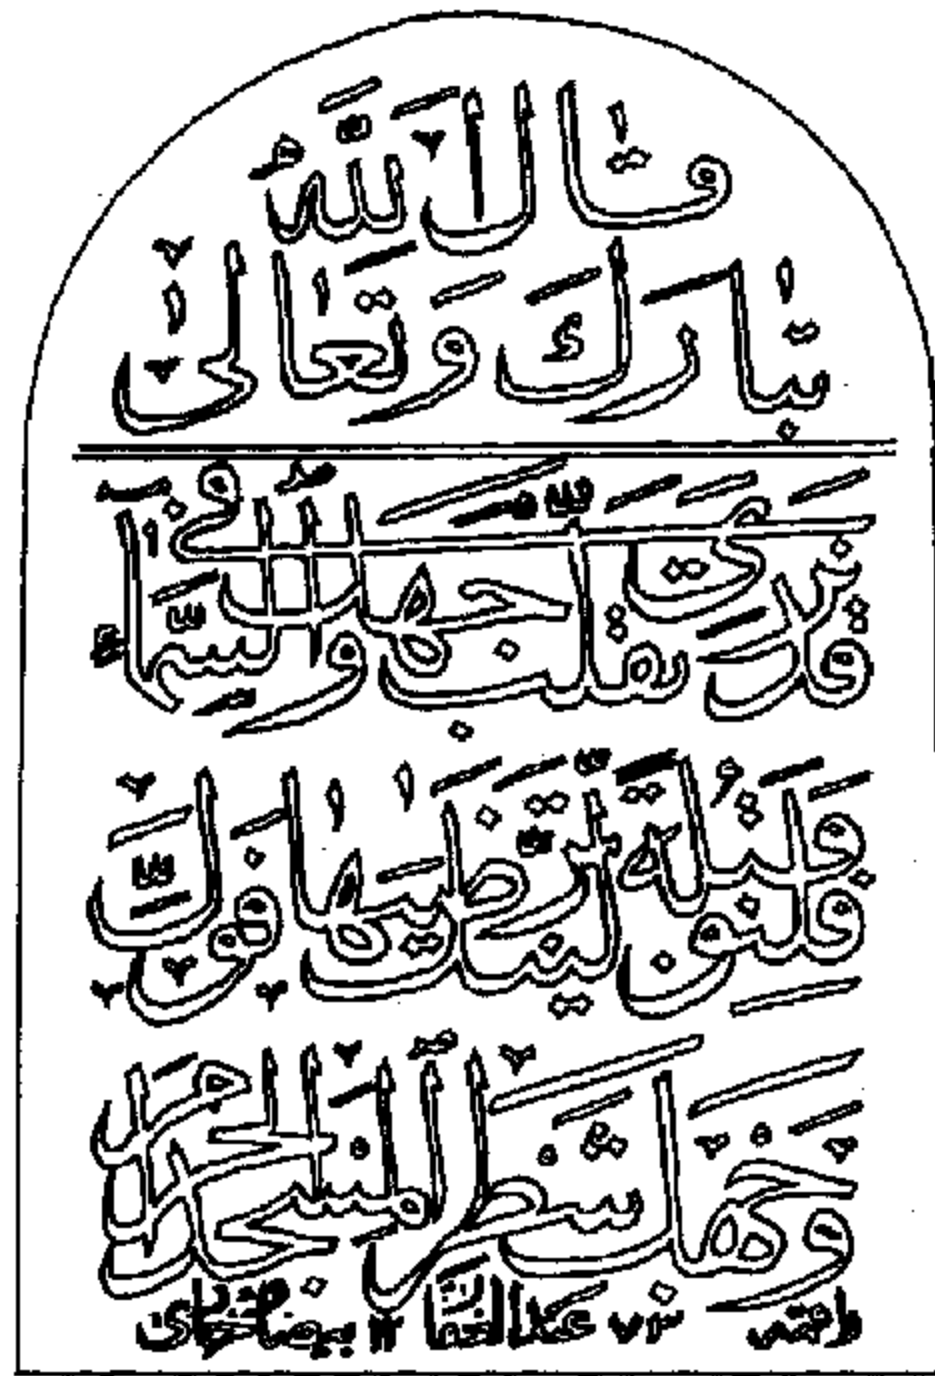 قَالَ اللَّهُ
تَبَارَكَ وَتَعَالَىٰ
قَدْ نَرَىٰ تَقَلُّبَ وَجْهِكَ فِي السَّمَاءِ
فَلَنُوَلِّيَنَّكَ قِبْلَةً تَرْضَاهَا فَوَلِّ
وَجْهَكَ شَطْرَ الْمَسْجِدِ الْحَرَامِ